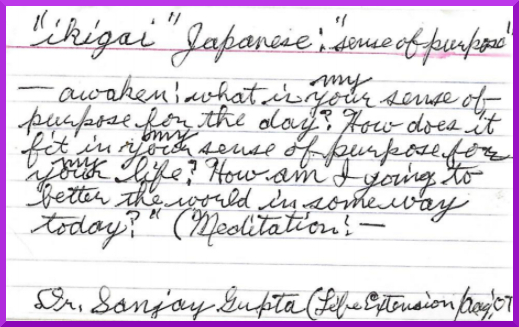 "ikigai" Japanese: "sense of purpose"
— awaken: what is your my sense of
purpose for the day? How does it
fit in your my sense of purpose for
your my life? How am I going to
better the world in some way
today?" (Meditation: —
Dr. Sanjay Gupta (Life Extension/